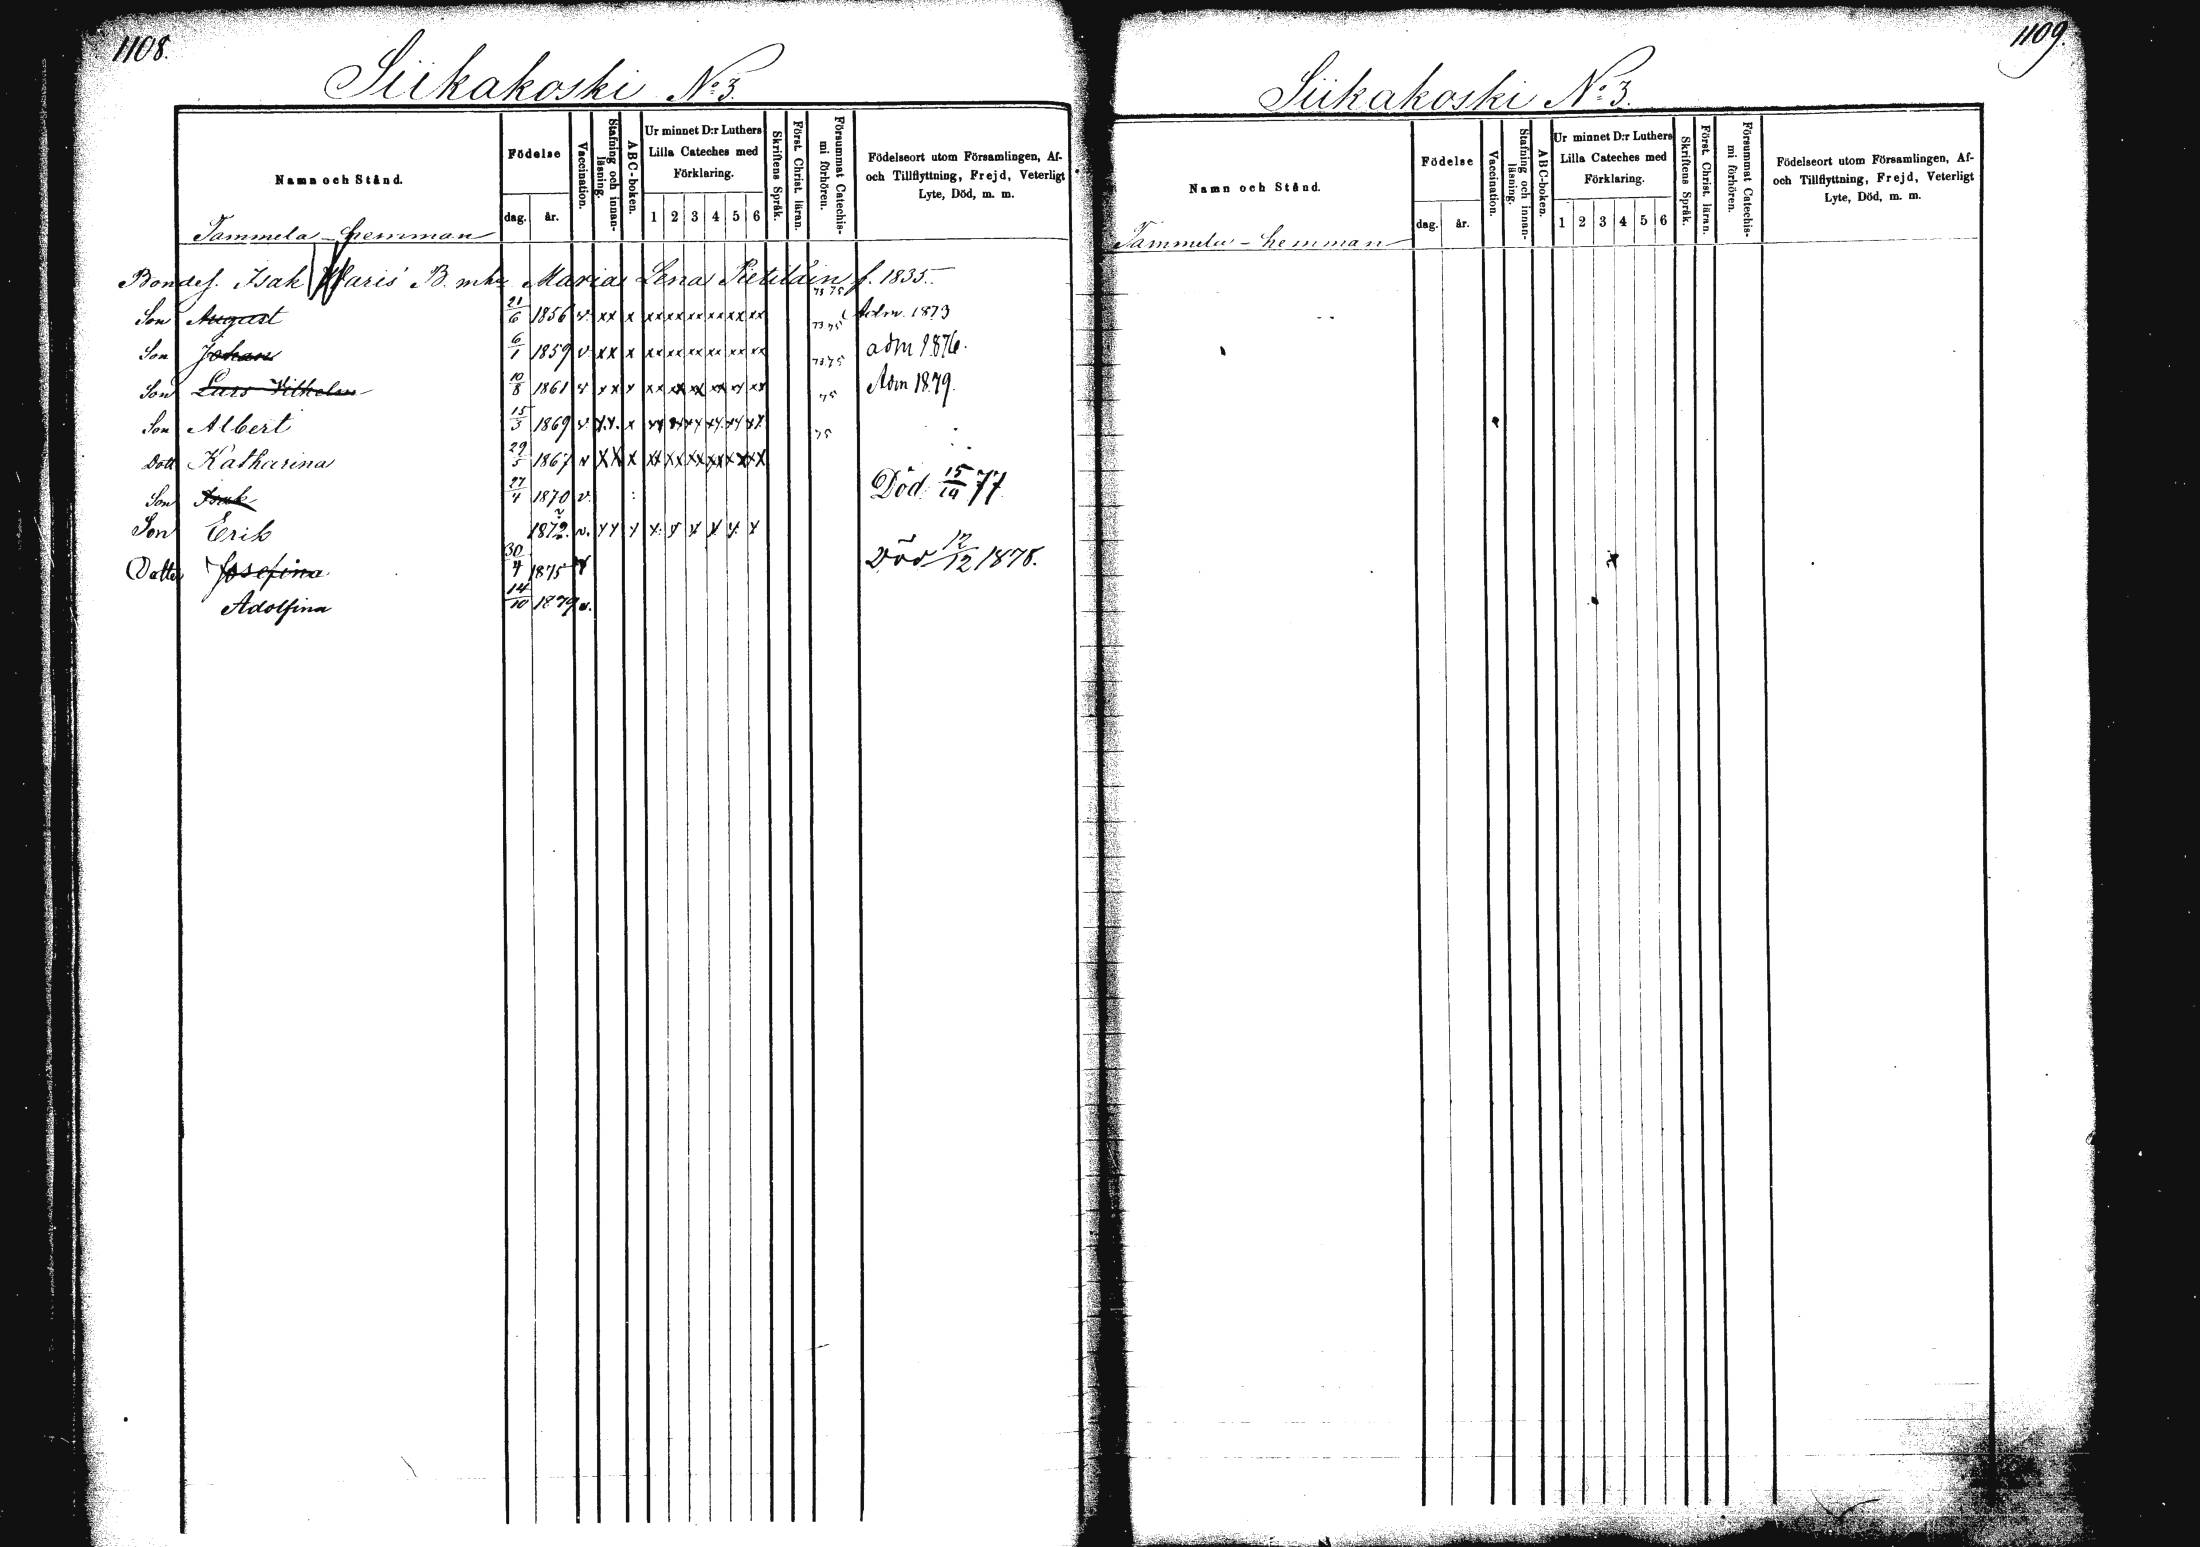 1108.
Siikakoski No 3.
Namn och Stånd.
Födelse
dag.
år.
Vaccination.
Stafning och innan-
läsning.
ABC-boken.
Ur minnet D:r Luthers
Lilla Cateches med
Förklaring.
1 2 3 4 5 6
Skriftens Språk.
Först. Christ. läran.
Försummat Catechis-
mi förhören.
Födelseort utom Församlingen, Af-
och Tillflyttning, Frejd, Veterligt
Lyte, Död, m. m.
Tammela - hemman
Bondes. Isak Waris' B. mhu Maria Lena f. 1835.
73 75
Son August 21/6 1856 v. xx x xx xx xx xx xx xx 73 75 Adm. 1873
Son Johan 6/1 1859 v xx x xx xx xx xx xx xx 73 75 adm 1876.
Son Lars Vilhelm 10/8 1861 v xx x xx xx xx xx xx xx 75 Adm 1879.
Son Albert 15/3 1869 v x.x. x xx xx xx xx xx xx 75
Dott Katharina 29/5 1867 v xx x xx xx xx xx xx xx
Son Isak 27/4 1870 v. Död 15/10 77
Son Erik 1872. v. xx x x x x x x x
Dotter Josefina 30/4 1875 Död 12/12 1875.
Adolfina 14/10 1879 v.
1109.
Siikakoski No 3.
Namn och Stånd.
Födelse
dag.
år.
Vaccination.
Stafning och innan-
läsning.
ABC-boken.
Ur minnet D:r Luthers
Lilla Cateches med
Förklaring.
1 2 3 4 5 6
Skriftens Språk.
Först. Christ. läran.
Försummat Catechis-
mi förhören.
Födelseort utom Församlingen, Af-
och Tillflyttning, Frejd, Veterligt
Lyte, Död, m. m.
Tammela - hemman